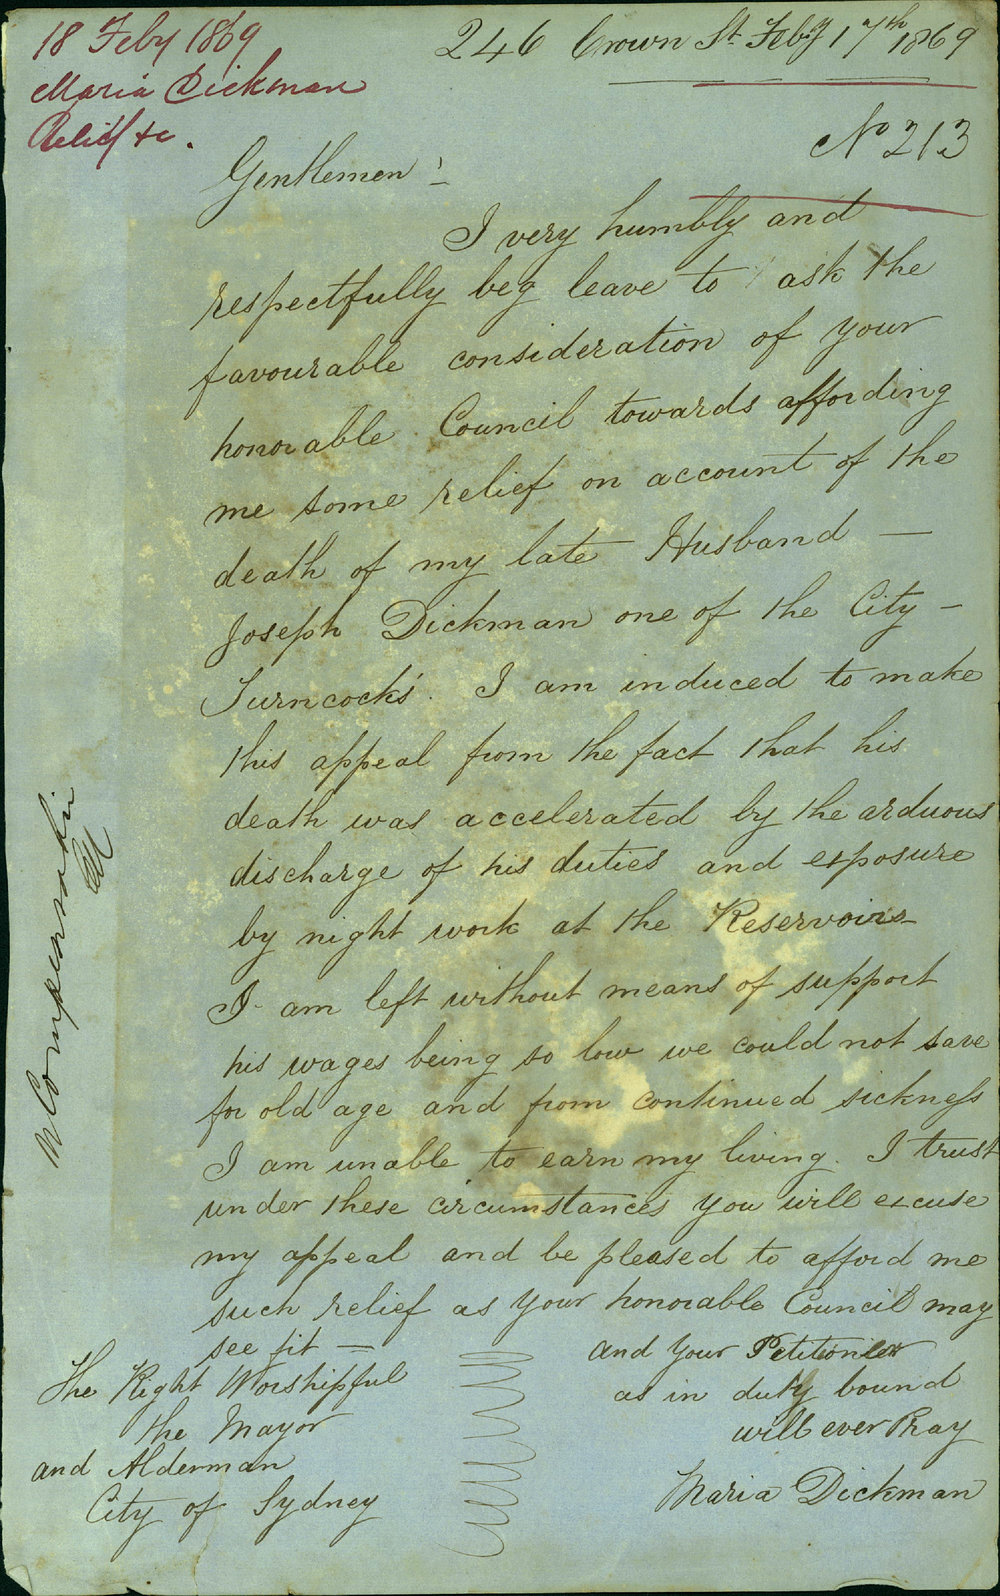 18 Feby 1869
Maria Dickman
Relief &c.
246 Crown St. Feby 17th 1869
No 213
Gentlemen :
I very humbly and
respectfully beg leave to ask the
favourable consideration of your
honorable Council towards affording
me some relief on account of the
death of my late Husband —
Joseph Dickman one of the City —
Turncocks'. I am induced to make
this appeal from the fact that his
death was accelerated by the arduous
discharge of his duties and exposure
by night work at the Reservoirs
I am left without means of support
his wages being so low we could not save
for old age and from continued sickness
I am unable to earn my living. I trust
under these circumstances you will excuse
my appeal and be pleased to afford me
such relief as your honorable Council may
see fit —
and your Petitioner
as in duty bound
will ever Pray
Maria Dickman
The Right Worshipful
the Mayor
and Alderman
City of Sydney
Compensation